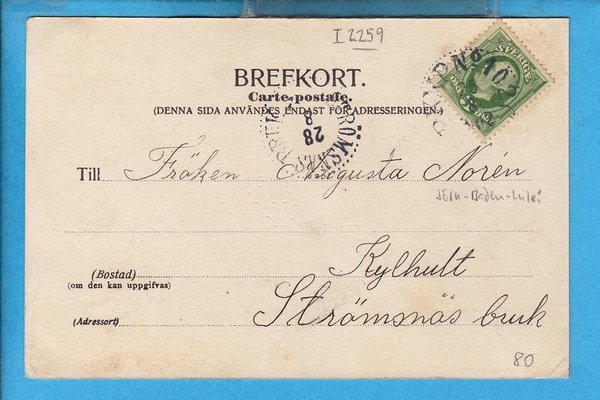 I 2259
BREFKORT.
Carte postale.
(DENNA SIDA ANVÄNDES ENDAST FÖR ADRESSERINGEN.)
SVERIGE
STRÖMSNÄSBRUK
28
8
Till Fröken Augusta Norén
Kylhult
(Bostad)
(om den kan uppgifvas)
Strömsnäs bruk
(Adressort)
80